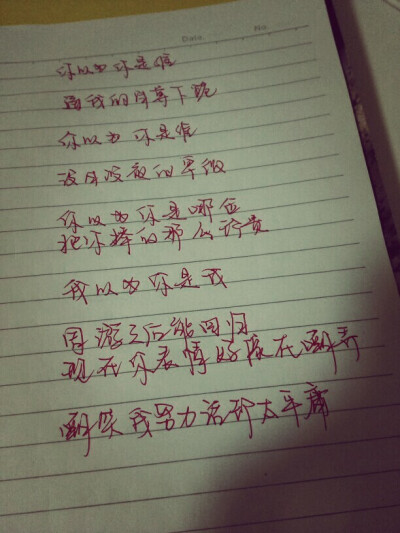 Date. No.
你以为你是谁
逼我的自尊下跪
你以为你是谁
没日没夜的卑微
你以为你是哪位
把你捧的那么珍贵
我以为你是我
周游之后能回归
现在你表情好像在嘲弄
嘲笑我努力活却太平庸